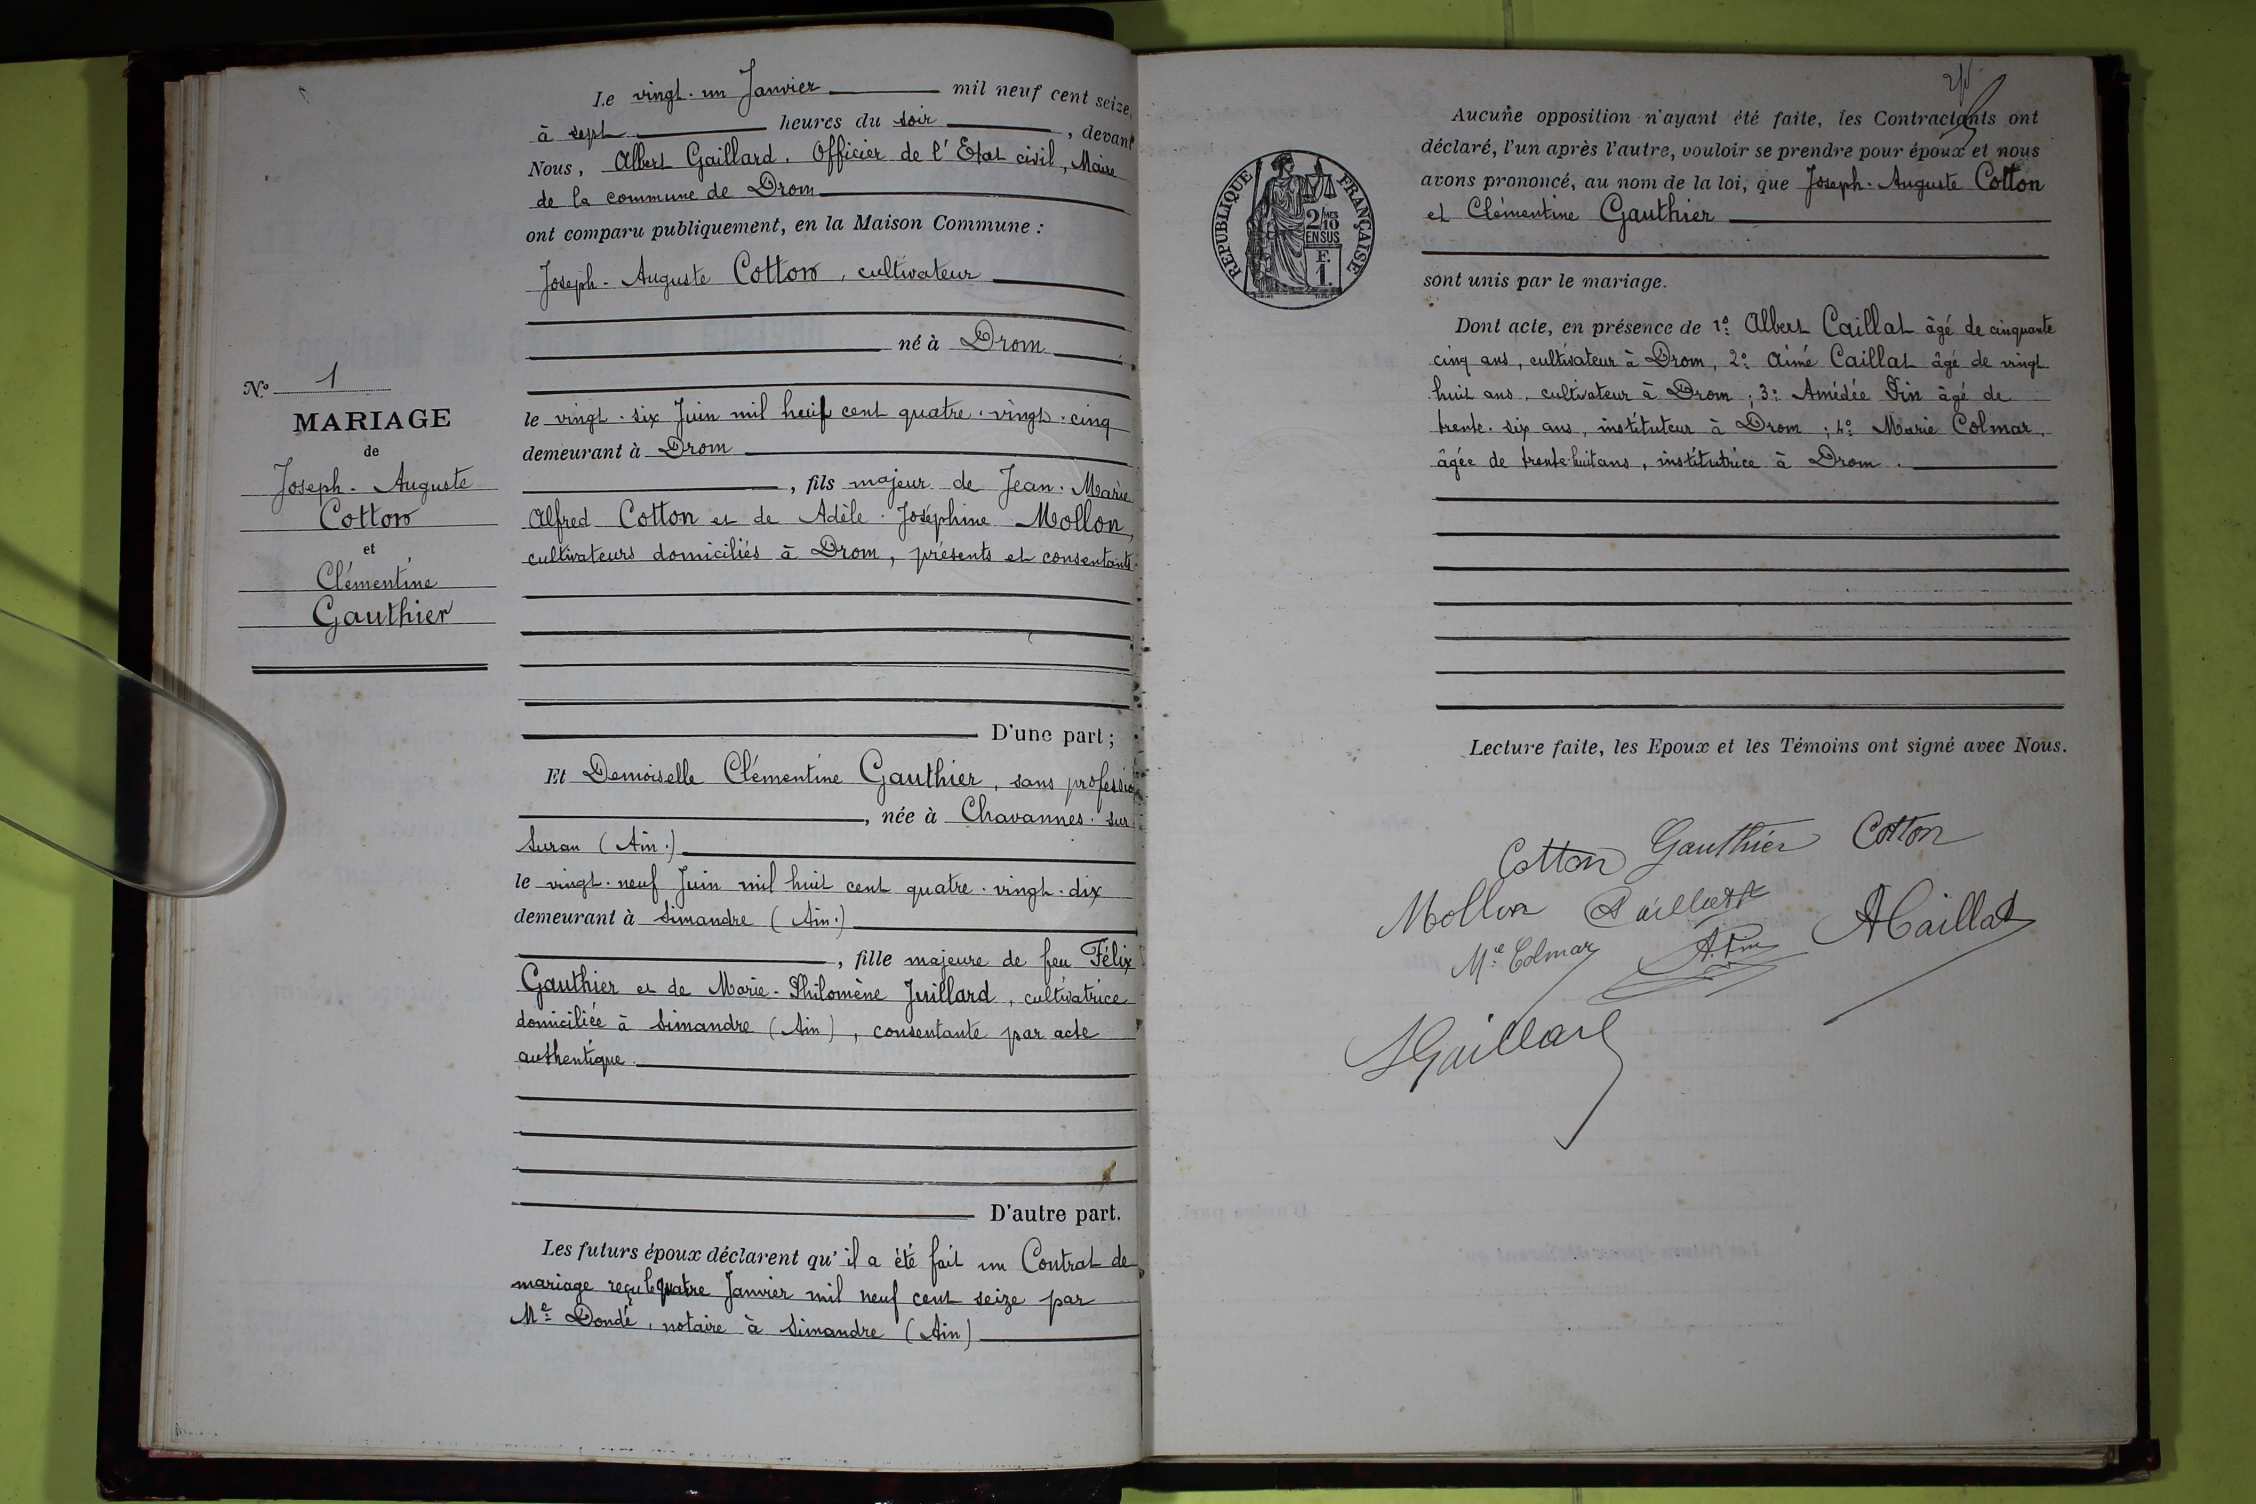 Le vingt-un Janvier mil neuf cent seize,
à sept heures du soir, devant
Nous, Albert Gaillard, Officier de l'Etat civil, Maire
de la commune de Drom
ont comparu publiquement, en la Maison Commune :
Joseph-Auguste Cotton, cultivateur
né à Drom
le vingt-six Juin mil huit cent quatre-vingt-cinq
demeurant à Drom
, fils majeur de Jean-Marie
Alfred Cotton et de Adèle-Joséphine Mollon,
cultivateurs domiciliés à Drom, présents et consentants.
D'une part ;
Et Demoiselle Clémentine Gauthier, sans profession
, née à Chavannes-sur
Suran (Ain.)
le vingt-neuf Juin mil huit cent quatre-vingt-dix
demeurant à Simandre (Ain.)
, fille majeure de feu Félix
Gauthier et de Marie-Philomène Juillard, cultivatrice
domiciliée à Simandre (Ain), consentante par acte
authentique.
D'autre part.
Les futurs époux déclarent qu'il a été fait un Contrat de
mariage reçu le quatre Janvier mil neuf cent seize par
Me Dondé, notaire à Simandre (Ain)
No 1
MARIAGE
de
Joseph-Auguste
Cotton
et
Clémentine
Gauthier
RÉPUBLIQUE FRANÇAISE
2/10
EN SUS
F.
1.
Aucune opposition n'ayant été faite, les Contractants ont
déclaré, l'un après l'autre, vouloir se prendre pour époux et nous
avons prononcé, au nom de la loi, que Joseph-Auguste Cotton
et Clémentine Gauthier
sont unis par le mariage.
Dont acte, en présence de 1o: Albert Caillat âgé de cinquante
cinq ans, cultivateur à Drom, 2o: Aimé Caillat âgé de vingt
huit ans, cultivateur à Drom ; 3o: Amédée Pin âgé de
trente-six ans, instituteur à Drom ; 4o: Marie Colmar,
âgée de trente-huit ans, institutrice à Drom.
Lecture faite, les Epoux et les Témoins ont signé avec Nous.
Cotton Gauthier Cotton
Mollon Caillat A Caillat
Mie Colmar A. Pin
A Gaillard